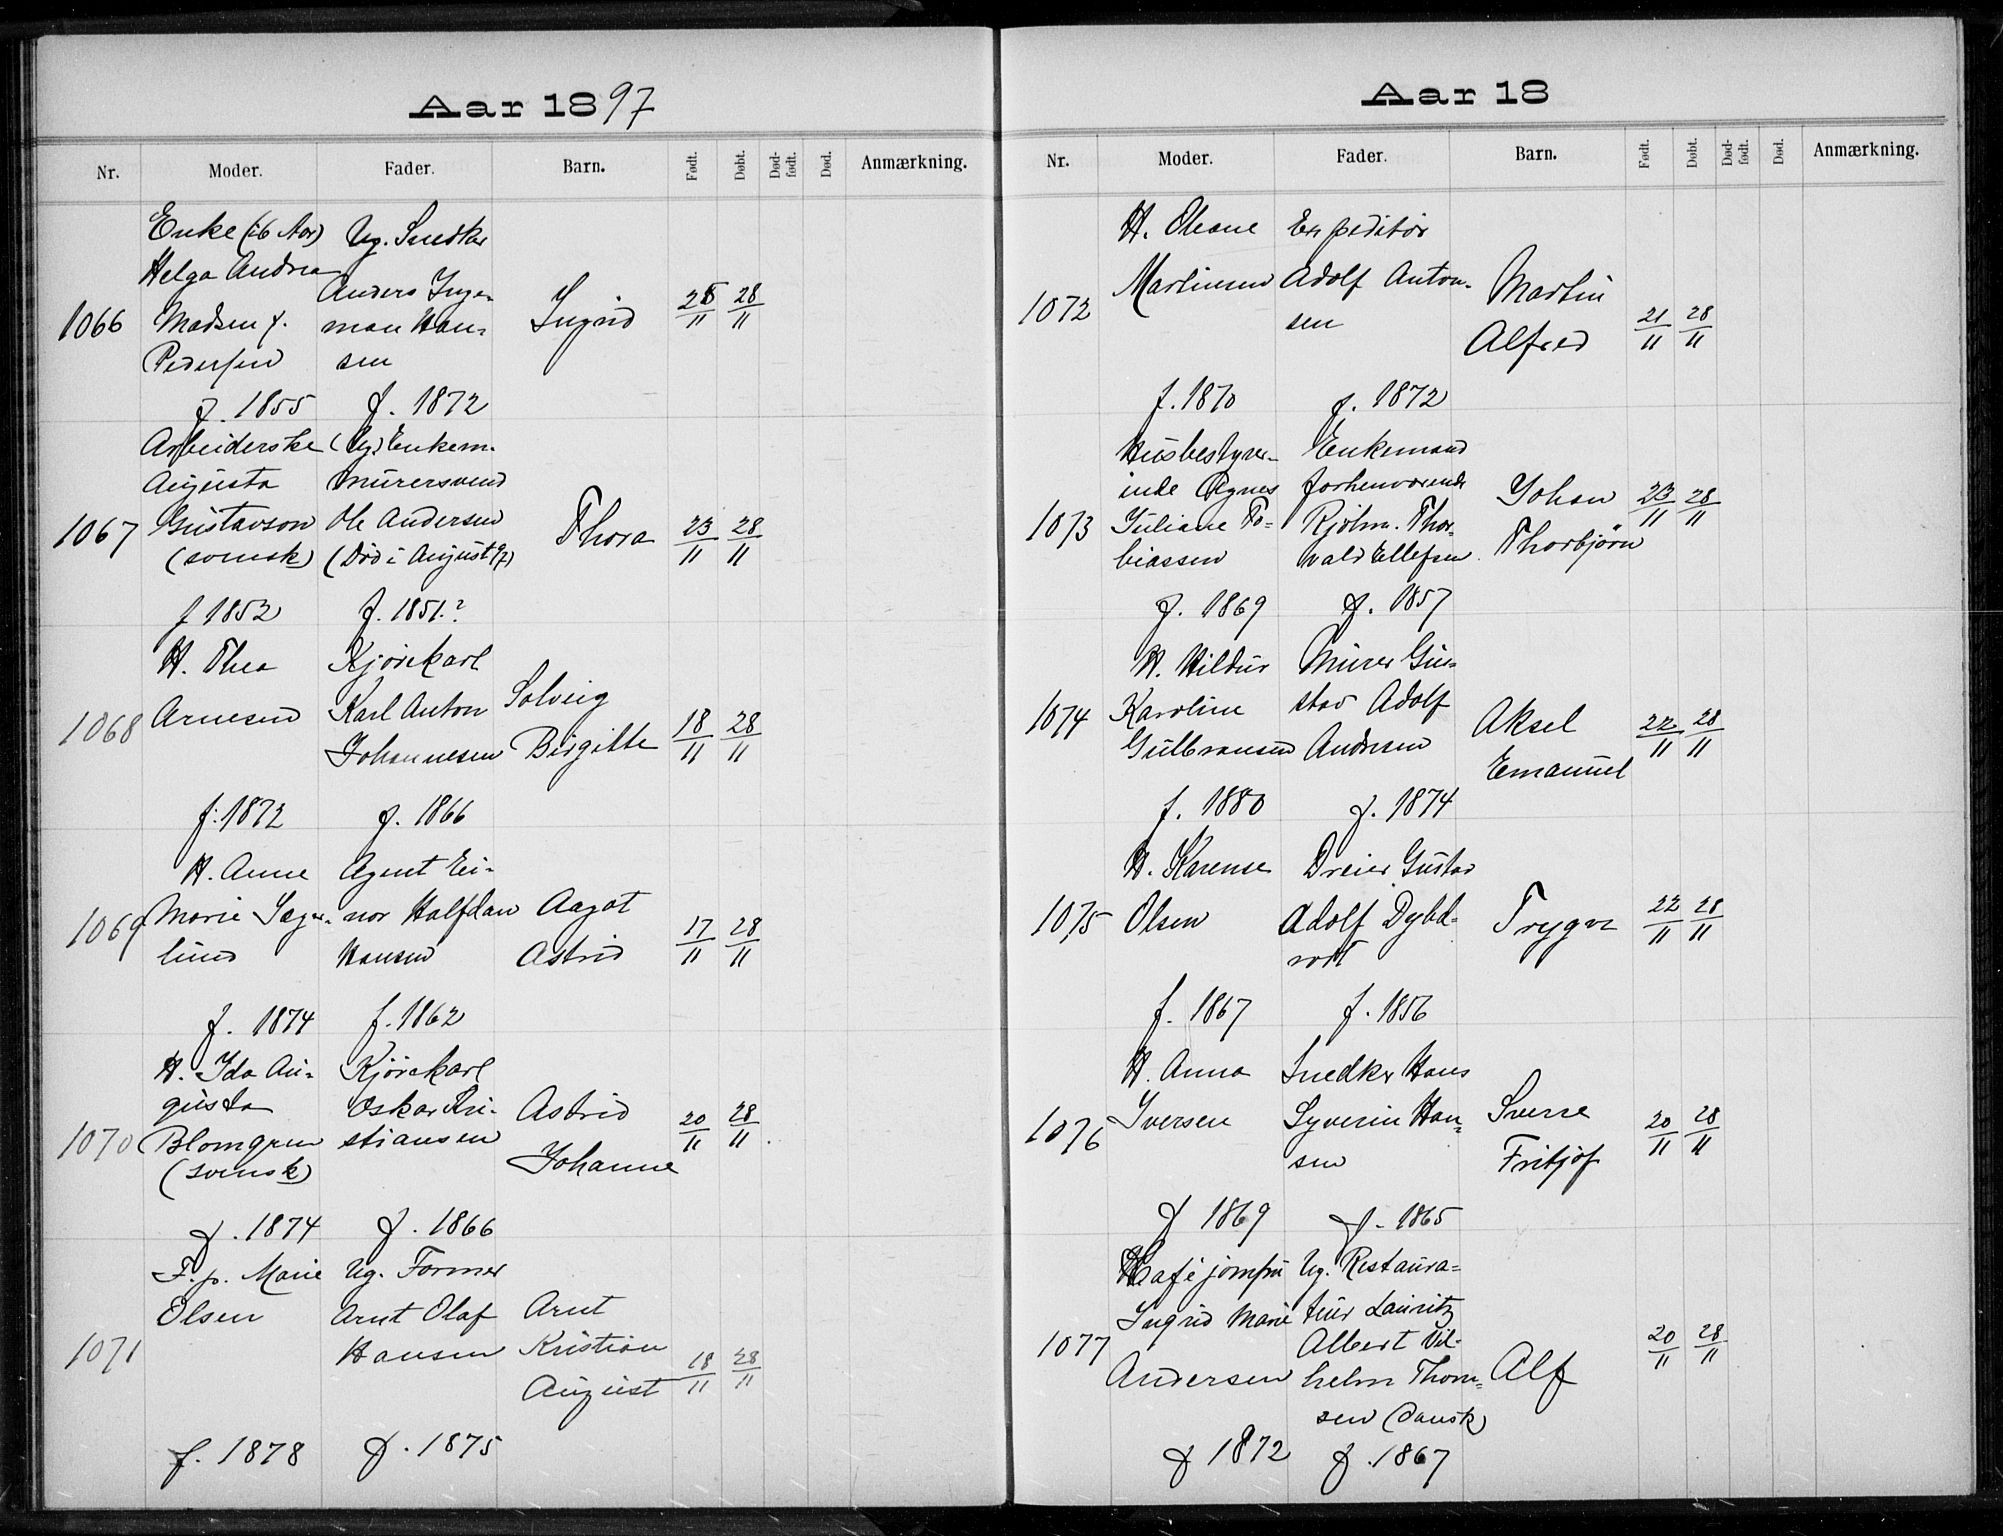 Aar 1897
Nr. Moder. Fader. Barn. Født. Døbt. Død-født. Død. Anmærkning.
1066
Enke (16 Aar)
Helga Andrea
Madsen f.
Pedersen
f. 1855
Ug. Snedker
Anders Inge-
man Han-
sen
f. 1872
Ingrid
25/11 28/11
1067
Arbeiderske
Augusta
Gustavson
(svensk)
f 1852
(Ug) Enkem.
Murersvend
Ole Andersen
(Död i August 97)
f. 1851.?
Thora
23/11 28/11
1068
H. Thea
Arnesen
f. 1872
Kjörekarl
Karl Anton
Johannesen
f. 1866
Solveig
Birgitte
18/11 28/11
1069
H. Anne
Marie
lund
f. 1874
Agent Ei-
nar Halfdan
Hansen
f. 1862
Aagot
Astrid
17/11 28/11
1070
H. Ida Au-
gusta
Blomgren
(svensk)
f. 1874
Kjörekarl
Oskar Kri-
stiansen
f. 1866
Astrid
Johanne
20/11 28/11
1071
F.p. Marie
Olsen
f. 1878
Ug. Former
Arnt Olaf
Hansen
f. 1875
Arnt
Kristian
August
18/11 28/11
Aar 18
Nr. Moder. Fader. Barn. Født. Døbt. Død-født. Død. Anmærkning.
1072
H. Oleane
Martinsen
f. 1870
Expeditör
Adolf Anton-
sen
f. 1872
Martin
Alfred
21/11 28/11
1073
Husbestyrer-
inde Agnes
Juliane To-
biassen
f. 1869
Enkemand
forhenværende
Kjöbm. Thor-
vald Ellefsen
f. 1857
Johan
Thorbjörn
23/11 28/11
1074
H. Hildur
Karoline
Gulbransen
f. 1880
Murer Gu-
stav Adolf
Andresen
f. 1874
Aksel
Emanuel
22/11 28/11
1075
H. Karense
Olsen
f. 1867
Dreier Gustav
Adolf Dybd-
rodt
f. 1856
Trygve
22/11 28/11
1076
H. Anna
Iversen
f 1869
Snedker Hans
Syverin Han-
sen
f. 1865
Sverre
Fritjof
20/11 28/11
1077
Kaféjomfru
Ingrid Marie
Andersen
f 1872
Ug. Restaura-
tur Lauritz
Albert Vil-
helm Thom-
sen (dansk)
f. 1867
Alf
20/11 28/11